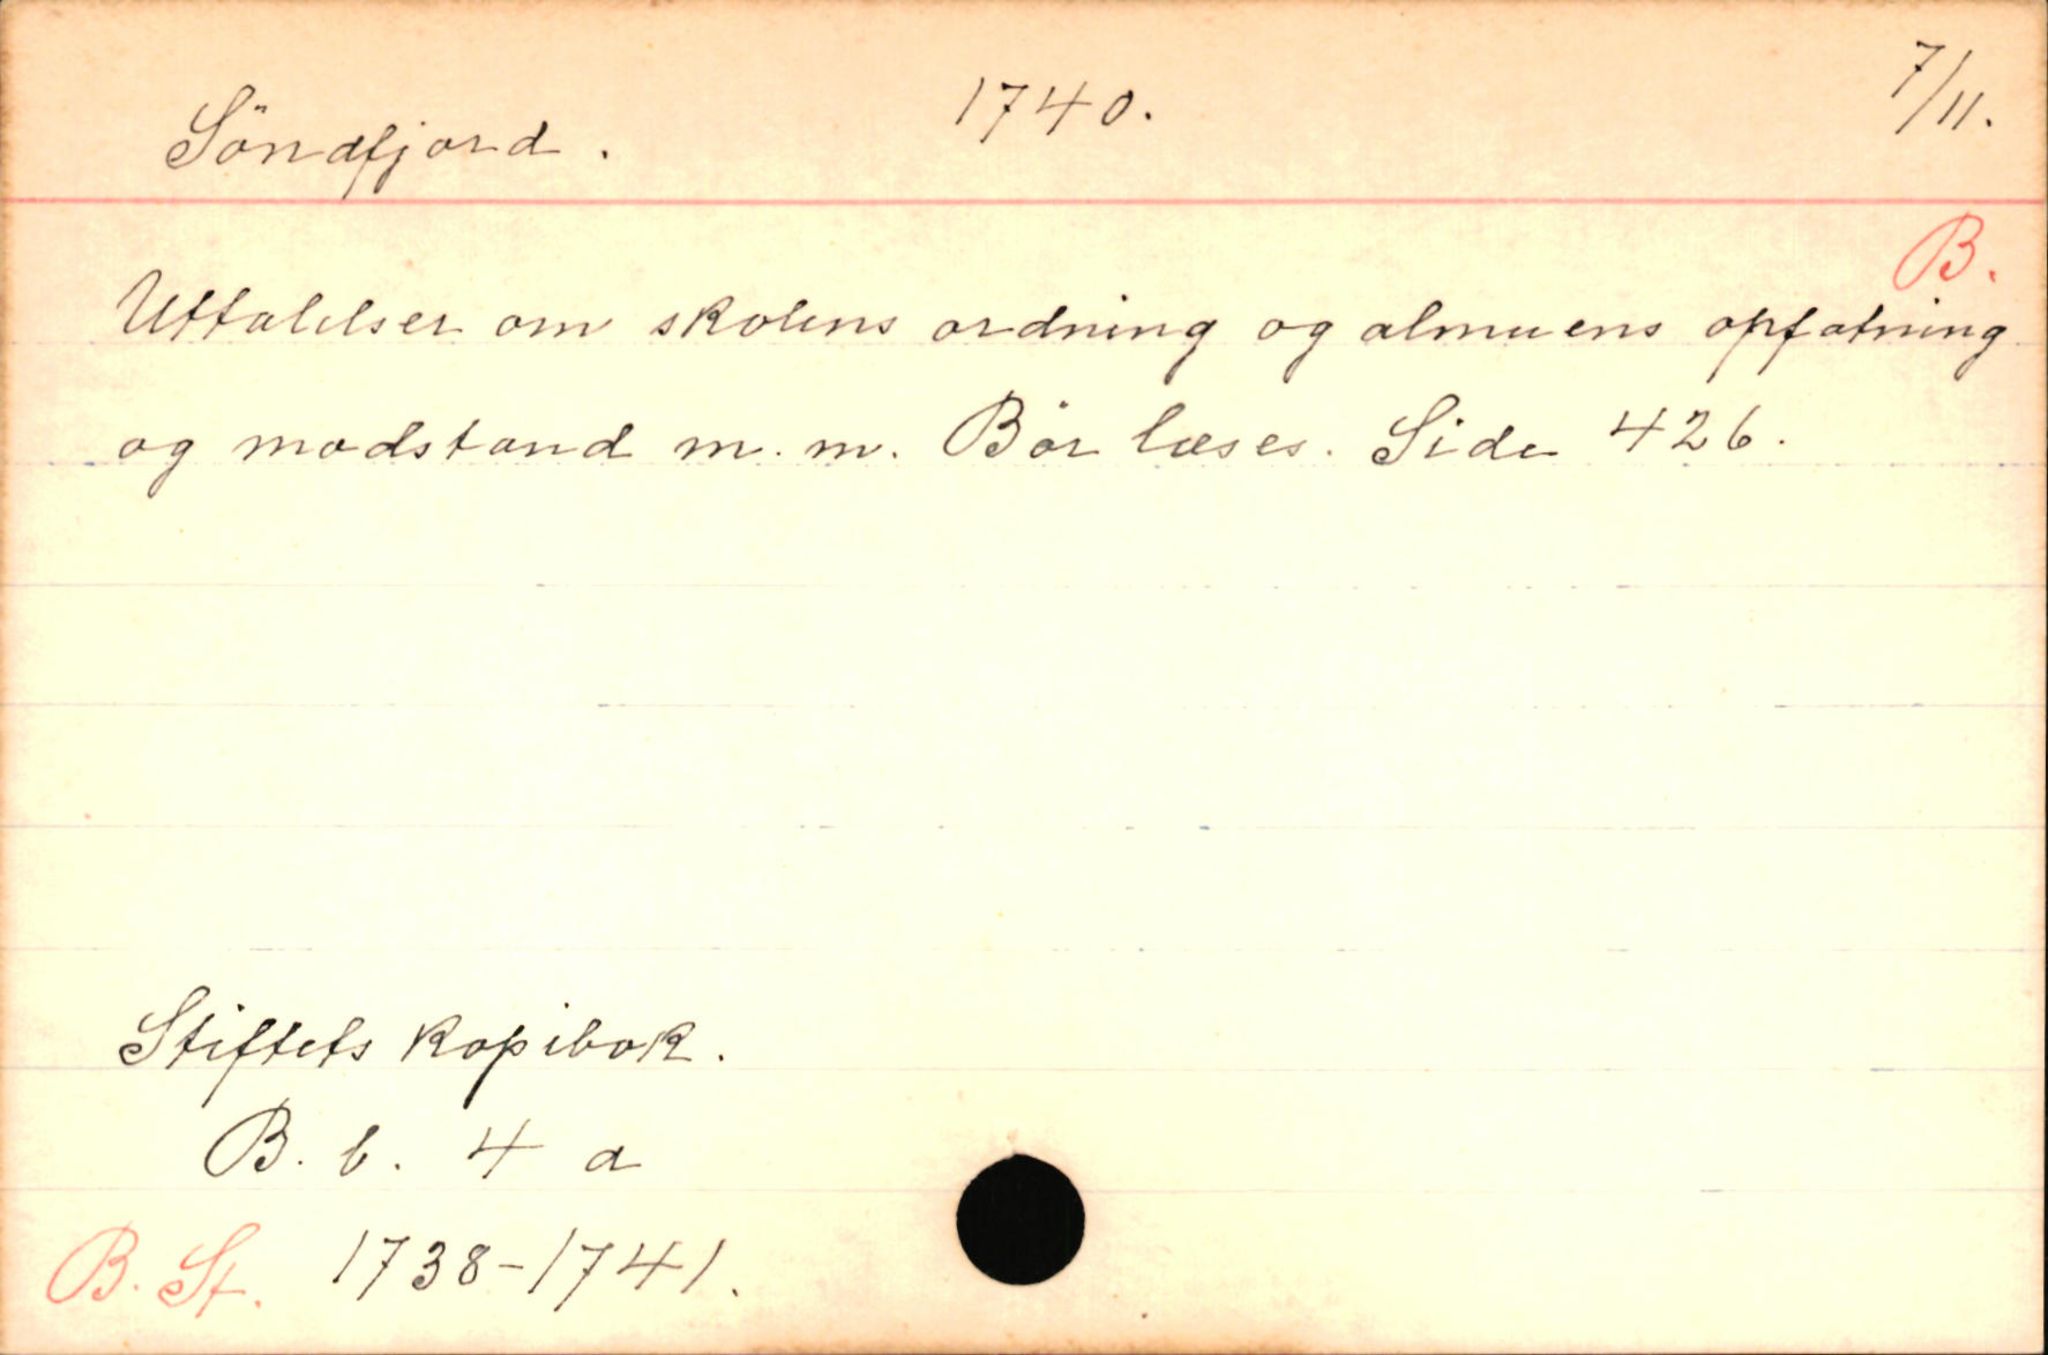 Söndfjord. 1740. 7/11.
B.
Uttalelser om skolens ordning og almuens opfatning
og modstand m. m. Bör læses. Side 426.
Stiftets kopibok.
B. b. 4 a
B. St. 1738-1741.